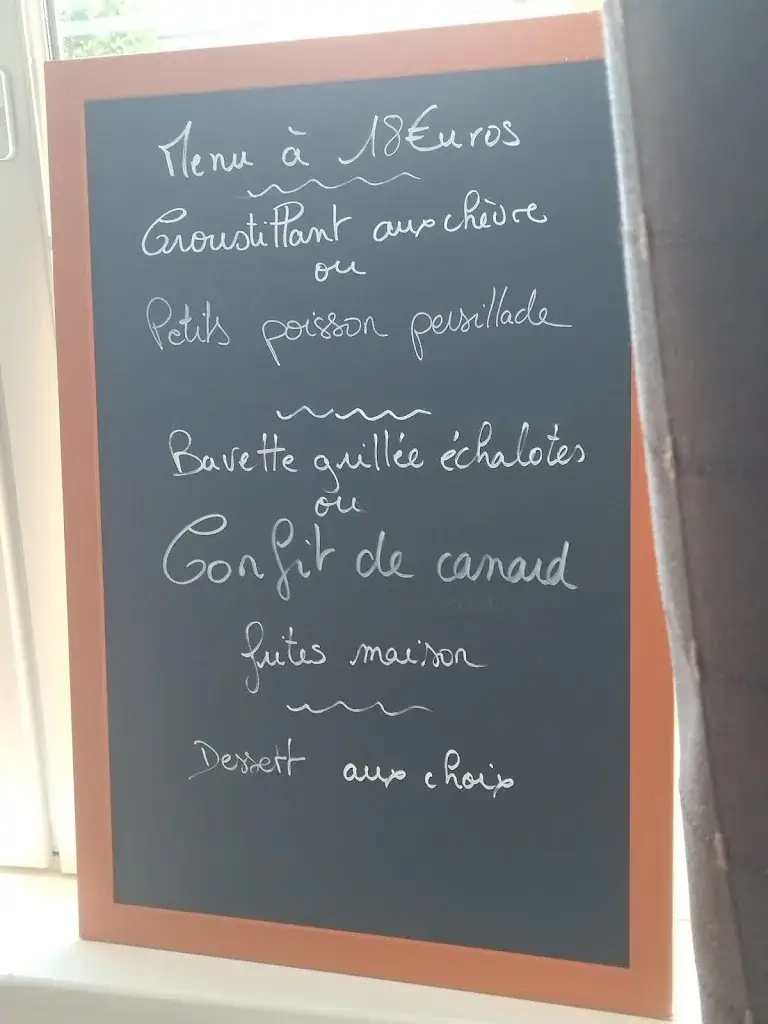 Menu à 18€uros
Croustillant aux chèvre
ou
Petits poisson persillade
Bavette grillée échalotes
ou
Confit de canard
frites maison
Dessert aux choix